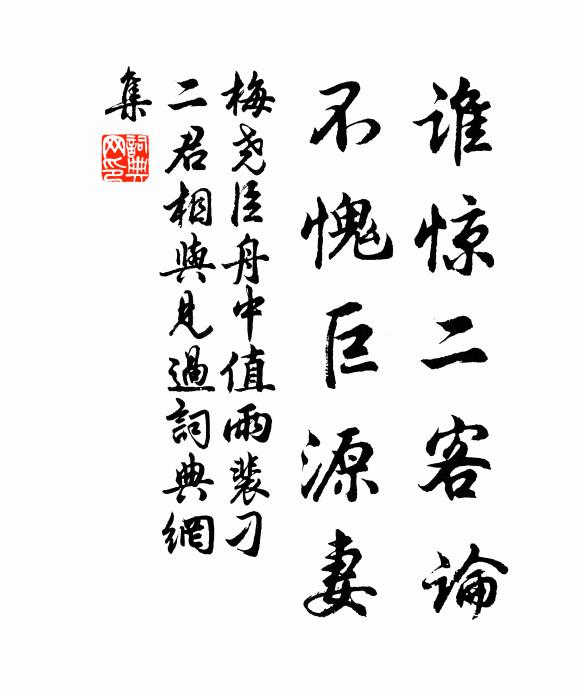 谁惊二客论
不愧巨源妻
梅尧臣舟中值雨裴刁
二君相與见過詞典網
集
詞典網印